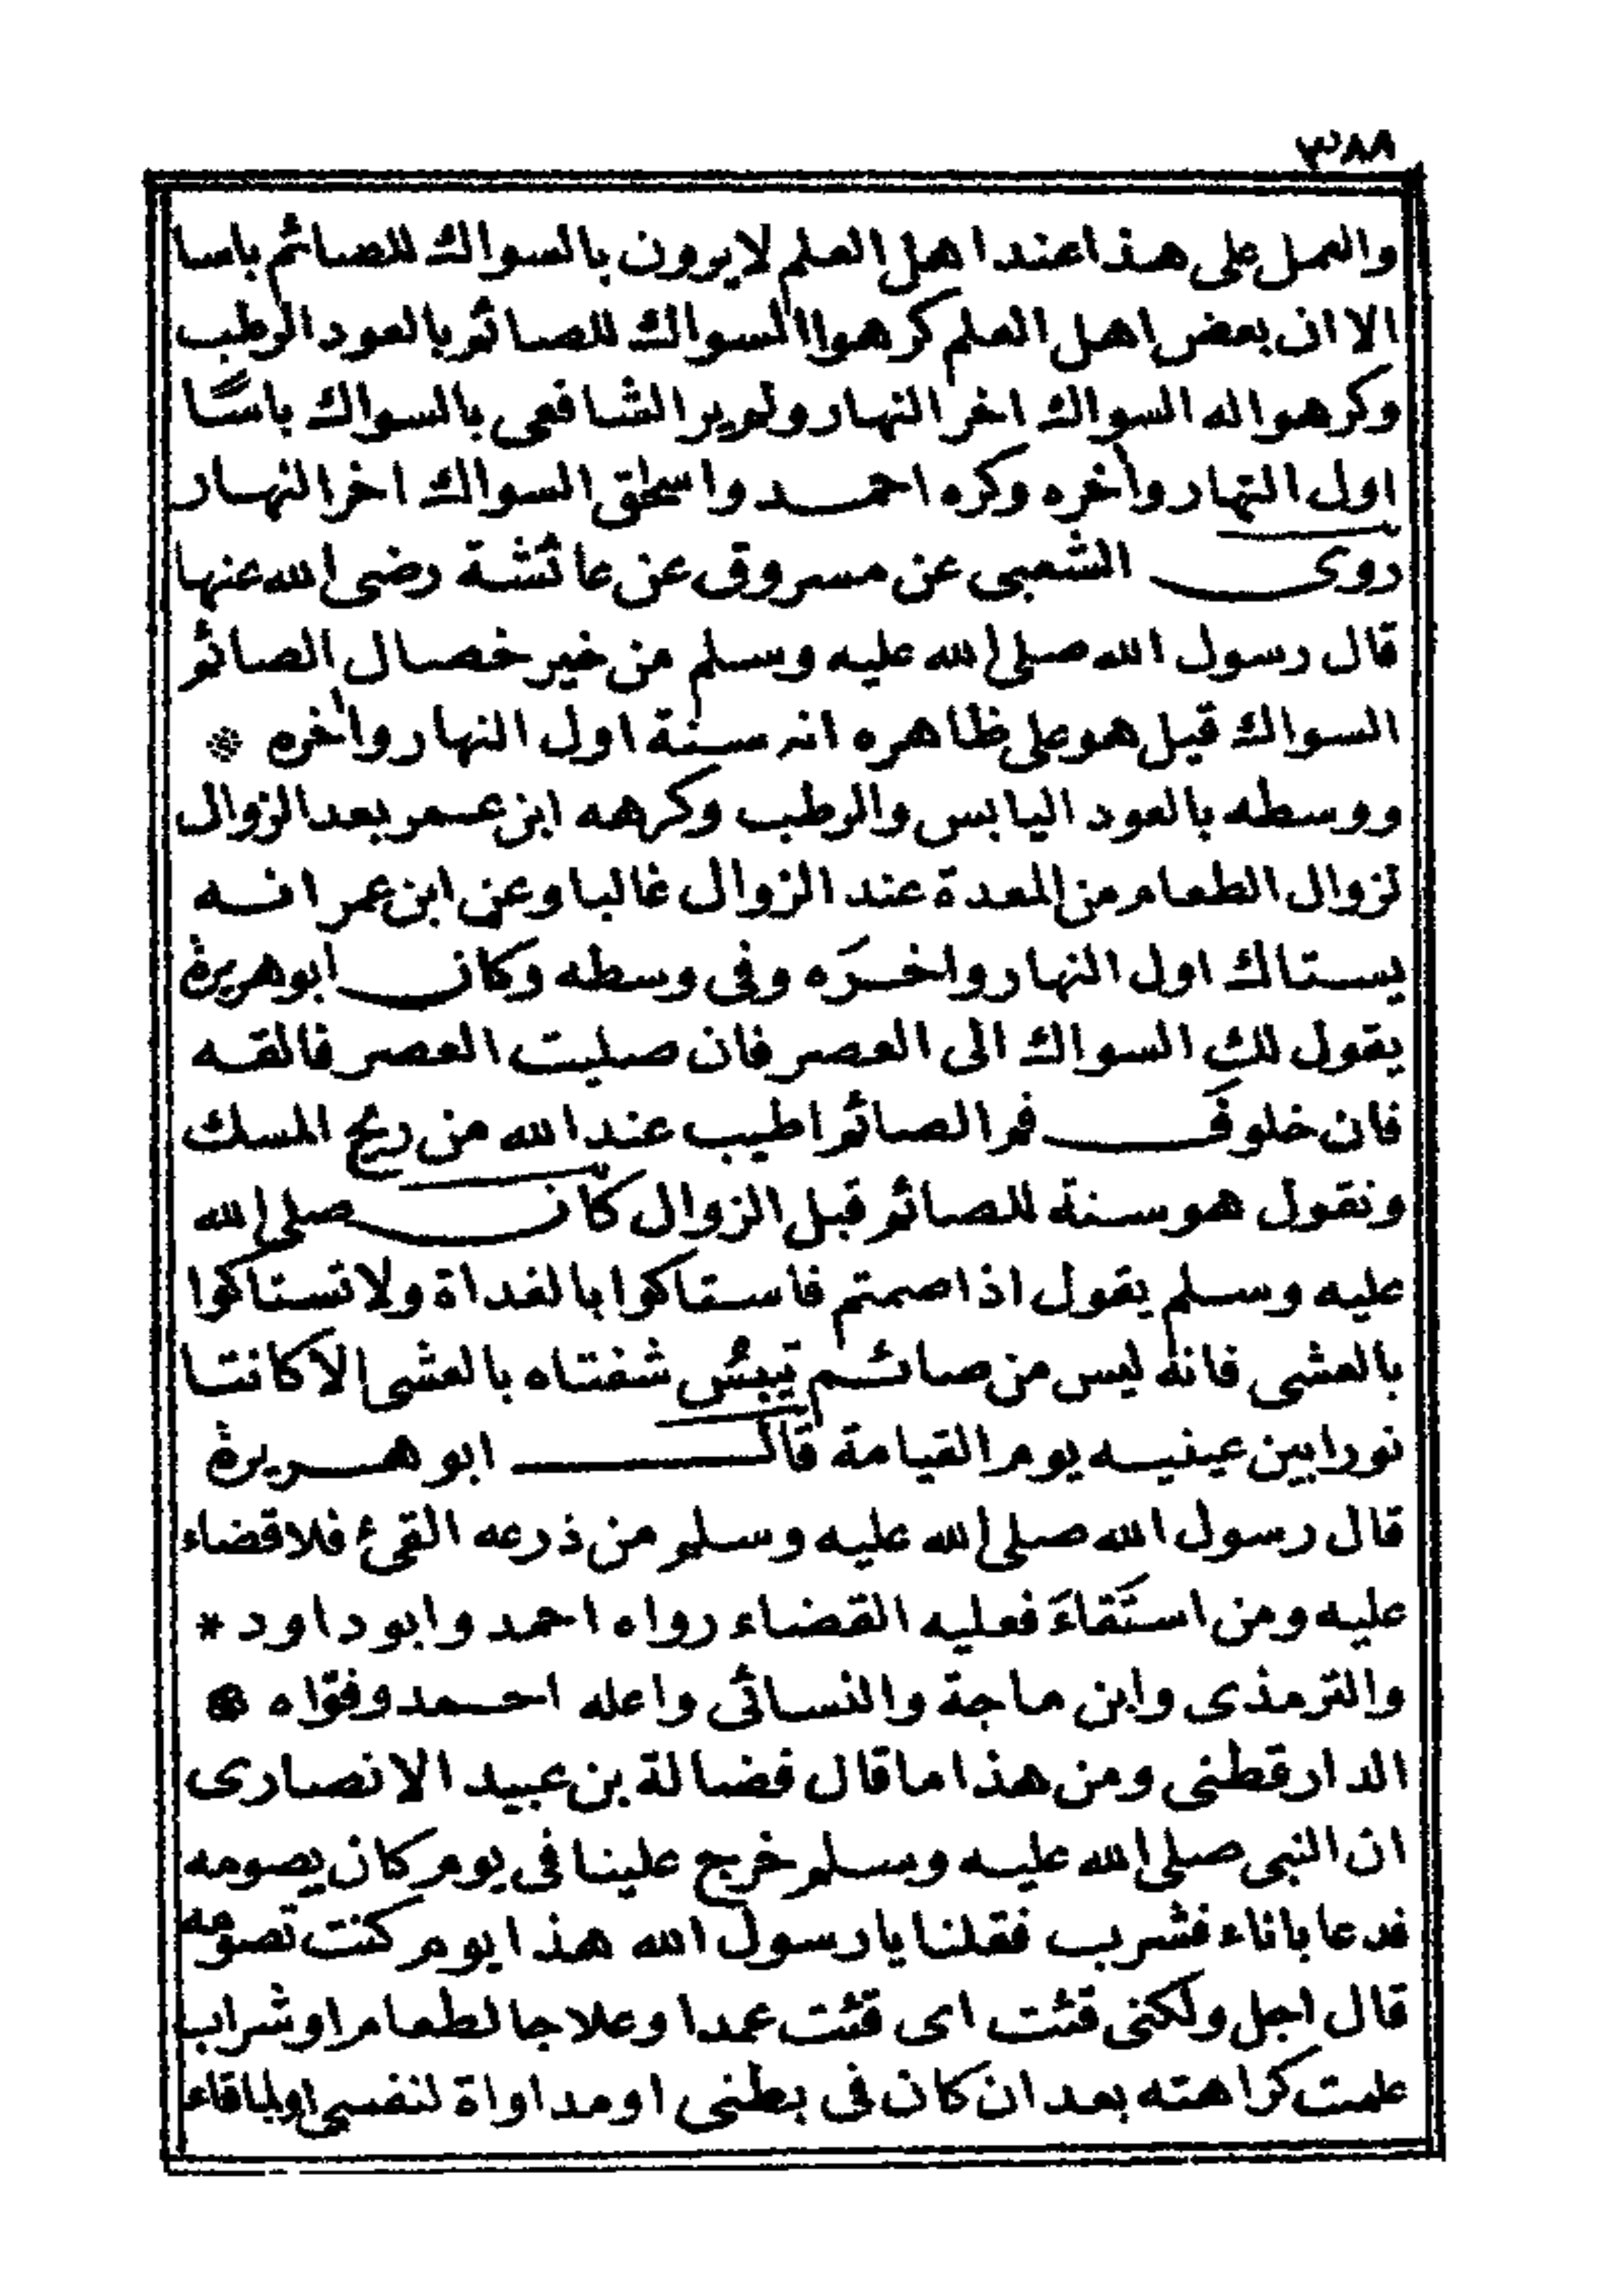 ٣٨٨
والعمل على هذا عند اهل العلم لايرون بالسواك للصائم باسا
الا ان بعض اهل العلم كرهوا السواك للصائم بالعود الرطب
وكرهوا له السواك اخر النهار ولم ير الشافعى بالسواك باسًا
اول النهار وأخره وكره احمد واسحٰق السواك اخر النهار
روى الشعبى عن مسروق عن عائشة رضى الله عنها
قال رسول الله صلى الله عليه وسلم من خير خصال الصائم
السواك قيل هو على ظاهره انه سنة اول النهار وأخره *
ووسطه بالعود اليابس والرطب وكرهه ابن عمر بعد الزوال
لزوال الطعام من المعدة عند الزوال غالبا وعن ابن عمر انه
يستاك اول النهار واخرَه وفى وسطه وكان ابو هريرة
يقول لك السواك الى العصر فان صليت العصر فالقه
فان خلوفَ فم الصائم اطيب عند الله من ريح المسك
ونقول هو سنة للصائم قبل الزوال كان صلى الله
عليه وسلم يقول اذا صمتم فاستاكوا بالغداة ولا تستاكوا
بالعشى فانه ليس من صائم تيبسُ شفتاه بالعشى الا كانتا
نورا بين عينيه يوم القيامة قال ابو هريرة
قال رسول الله صلى الله عليه وسلم من ذرعه القئ فلا قضاء
عليه ومن استَقاءَ فعليه القضاء رواه احمد وابو داود *
والترمذى وابن ماجة والنسائى واعله احمد وقوّاه
الدارقطنى ومن هذا ما قال فضالة بن عبيد الانصارى
ان النبى صلى الله عليه وسلم خرج علينا فى يوم كان يصومه
فدعا باناء فشرب فقلنا يا رسول الله هذا يوم كنت تصومه
قال اجل ولكنى قئت اى قئت عمدا وعلاجا لطعام او شراب
علمت كراهته بعد ان كان فى بطنى او مداواة لنفسى او لما قاء